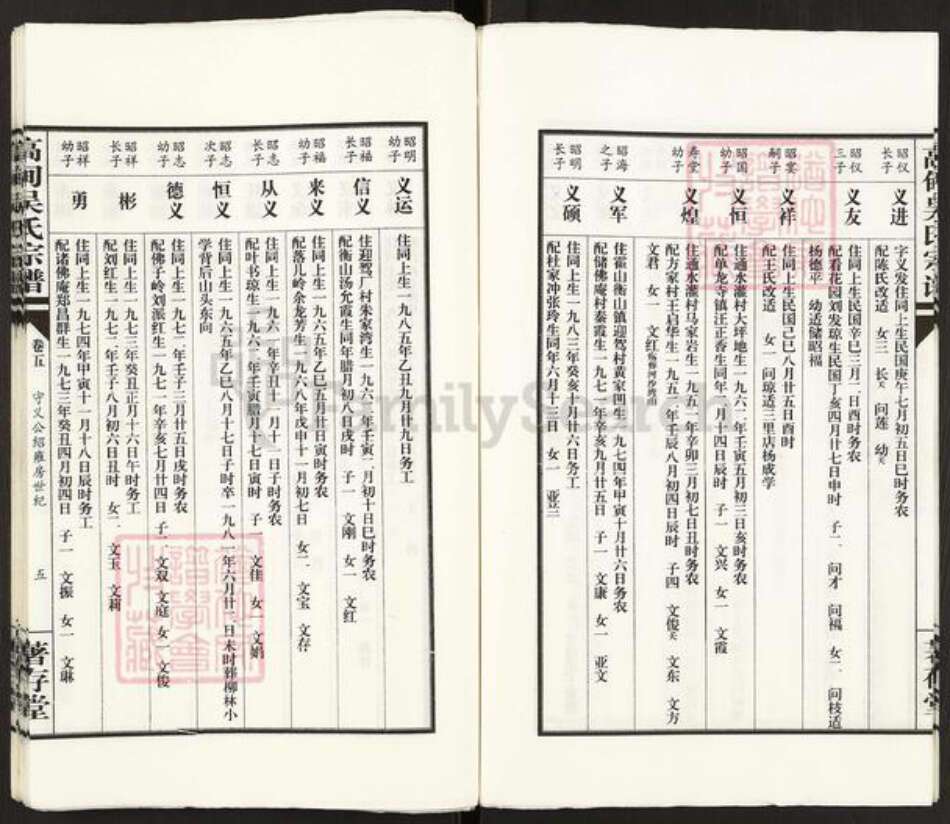 昭仪长子
义进
字义发住同上生民国庚午七月初五日巳时务农
配陈氏改适 女三 长夭 问莲 幼夭
昭仪三子
义友
住同上生民国辛巳三月一日酉时务农
配看花园刘发琼生民国丁亥四月廿七日申时 子二 问才 问福 女二 问枝适
杨德平 幼适储昭福
昭宴嗣子
义祥
住同上生民国己巳八月廿五日酉时
配王氏改适 女一 问琼适三里店杨成学
昭国幼子
义恒
住通水灌村大坪地生一九六二年壬寅五月初三日亥时务农
配单龙寺镇汪正香生同年二月十四日辰时 子一 文兴 女一 文霞
寿堂幼子
义煌
住通水灌村马家岩生一九五一年辛卯三月初七日丑时务农
配方家村王启华生一九五二年壬辰八月初四日辰时 子四 文俊夭 文东 文方
文君 女一 文红
昭海之子
义军
住霍山衡山镇迎驾村黄家凹生一九七四年甲寅十月廿六日务农
配储佛庵村秦霞生一九七一年辛亥九月廿五日 子一 文康 女一 亚文
昭明长子
义硕
住同上生一九八三年癸亥十月廿六日务工
配杜家冲张玲生同年六月十三日 女一 亚兰
昭明幼子
义运
住同上生一九八五年乙丑九月廿九日务工
昭福长子
信义
住迎驾厂村朱家湾生一九六二年壬寅二月初十日巳时务农
配衡山汤允霞生同年腊月初八日戌时 子一 文刚 女一 文红
昭福幼子
来义
住同上生一九六五年乙巳五月廿日寅时务农
配落儿岭余龙芳生一九六八年戊申十一月初七日 女二 文宝 文存
昭志长子
从义
住同上生一九六一年辛丑十一月十一日子时务农
配叶书琼生一九六二年壬寅腊月十七日寅时 子一 文佳 女一 文娟
昭志次子
恒义
住同上生一九六五年乙巳八月十七日子时卒一九八一年六月廿二日未时葬柳林小
学背后山头东向
昭志幼子
德义
住同上生一九七二年壬子三月廿五日戌时务农
配佛子岭刘派红生一九七一年辛亥七月廿四日 子二 文双 文庭 女一 文俊
昭祥长子
彬
住同上生一九七三年癸丑正月十六日午时务工
配刘红生一九七二年壬子八月初六日丑时 女二 文玉 文莉
昭祥幼子
勇
住同上生一九七四年甲寅十一月十八日辰时务工
配诸佛庵郑昌群生一九七三年癸丑四月初四日 子一 文振 女一 文琳
高河吴氏宗谱
卷五
守义公绍雍房世纪
五
著存堂
FamilySearch